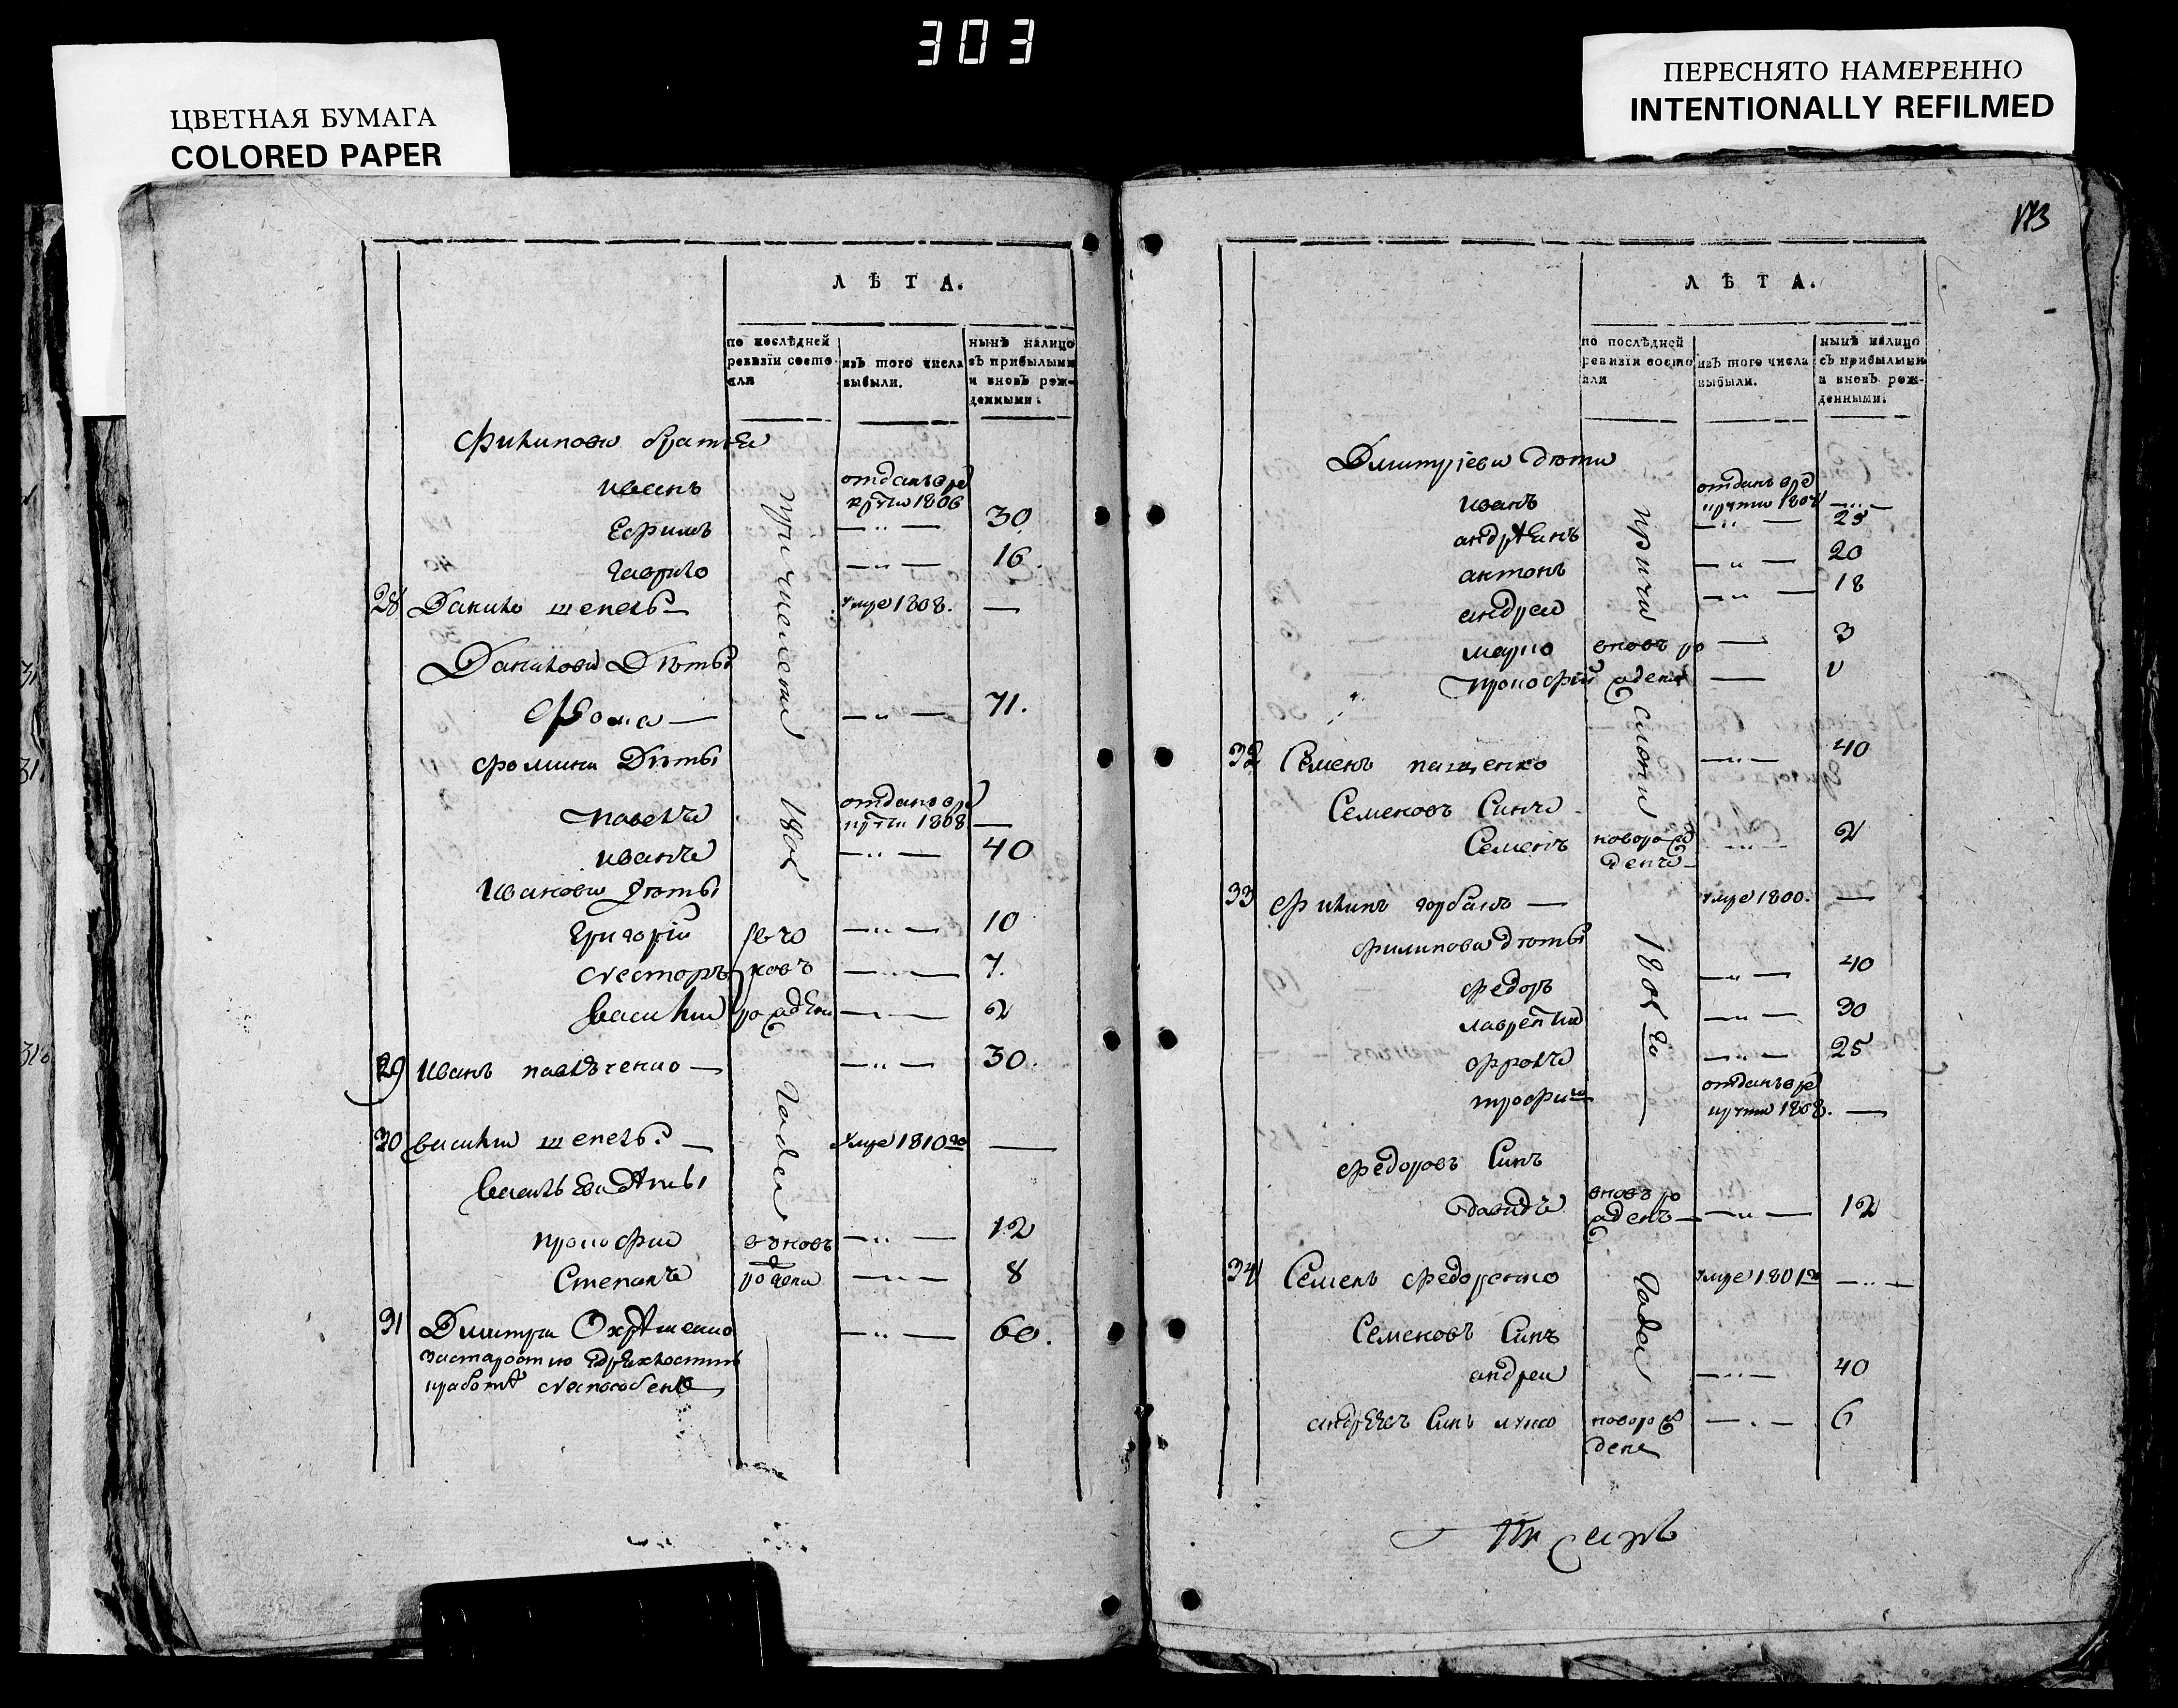 303
ЦВЕТНАЯ БУМАГА
COLORED PAPER
ПЕРЕСНЯТО НАМЕРЕННО
INTENTIONALLY REFILMED
ЛѢТА.
по послѣдней ревизіи состояли
изъ того числа выбыли.
нынѣ налицо съ прибылыми и вновь рожденными.
Филипови братья
иванъ отданъ врекруты 1806
Ефимъ —„— 30
Гаврило —„— 16.
28 Данило шепель — умре 1808. —
Данилови Дѣты
Фома — —„— 71.
фомини Дѣты
павелъ отданъ врекруты 1808 —
иванъ —„— 40
Иванови дѣты
Григорій —„— 10
Несторъ —„— 7.
василий —„— 2
29 иванъ павлѣченко — —„— 30.
30 василий шепель — умре 1810го —
Васильеви дѣты
прокофий вновь —„— 12
Степанъ рождени —„— 8
31 Дмитри Охрѣменко —„— 60.
застаростию
работѣ неспособенъ
причислени 1801 годе
173
ЛѢТА.
по послѣдней ревизіи состояли
изъ того числа выбыли.
нынѣ налицо съ прибылыми и вновь рожденными.
Дмитріеви дѣти
иванъ отданъ врекруты —„—
андрѣянъ —„— 25
антонъ —„— 20
андреи —„— 18
марко вновь ро — 3
прокофій ждени —
32 Семенъ пащенко —„— 40
Семеновъ Синъ
Семенъ новорожденъ —„— 2
33 Филипъ горбань — умре 1800. —
филипови дѣты
федоръ —„— 40
лаврентий —„— 30
фролъ —„— 25
трофимъ отданъ врекруты 1808. —
федоровъ Синъ
давидъ вновь рожденъ —„— 12
34 Семенъ федоренко умре 1801го —„—
Семеновъ Синъ
андреи —„— 40
андрѣевъ Синъ новорожденъ —„— 6
годе